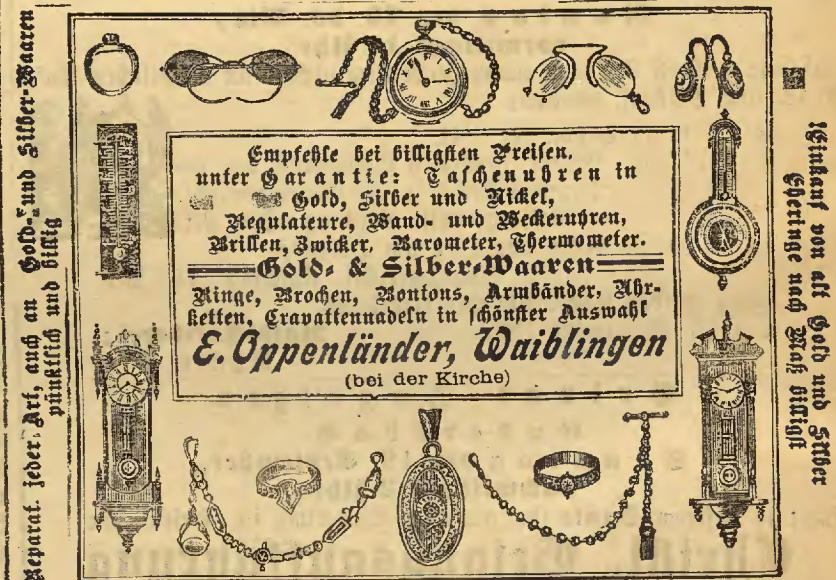 Reparat. jeder Art, auch an Gold- und Silber-Waaren
pünktlich und billig
Empfehle bei billigsten Preisen,
unter Garantie: Taschenuhren in
Gold, Silber und Nickel,
Regulateure, Wand- und Weckeruhren,
Brillen, Zwicker, Barometer, Thermometer.
Gold- & Silber-Waaren
Ringe, Brochen, Bontons, Armbänder, Uhr-
ketten, Cravattennadeln in schönster Auswahl
E. Oppenländer, Waiblingen
(bei der Kirche)
Einkauf von alt Gold und Silber
Eheringe nach Maß billigst